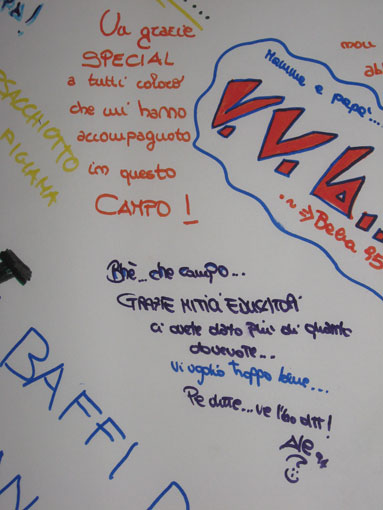 Un grazie
SPECIAL
a tutti coloro
che mi hanno
accompagnato
in questo
CAMPO!
Mamma e papà...
V.V.B..
Beba 95
SACCHIOTTO
PIGIAMA
Bhè... che campo...
GRAZIE MITICI EDUCATORI
ci avete dato più di quanto
dovevate...
Vi voglio troppo bene...
Pe dirre... ve l'ho dtt!
Ale
BAFFI D